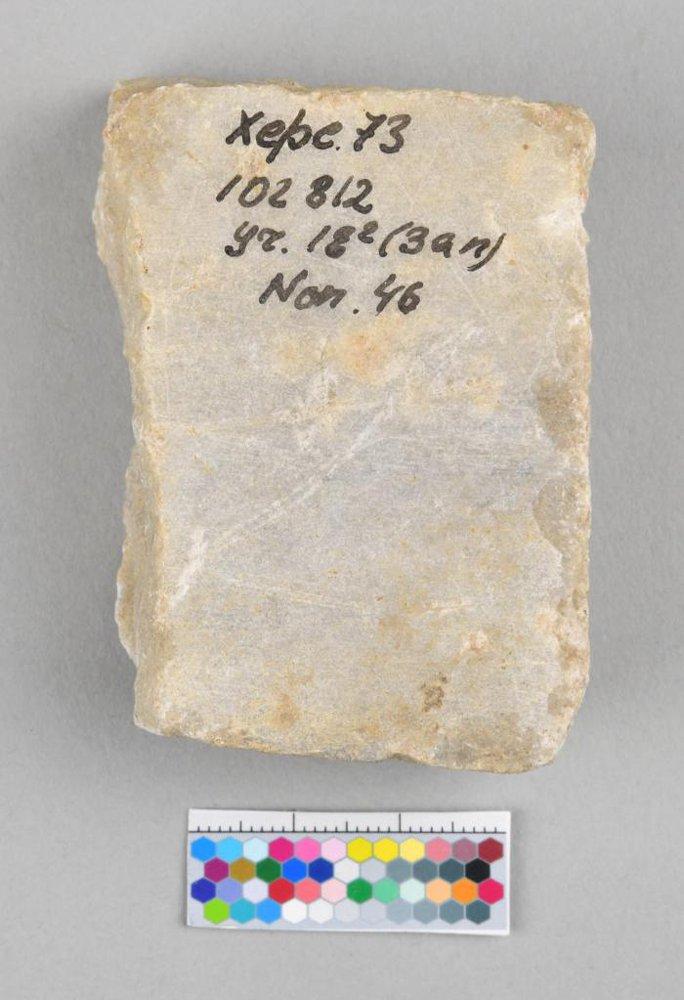 Херс. 73
102 812
Уч. 18² (Зап)
Пол. 46